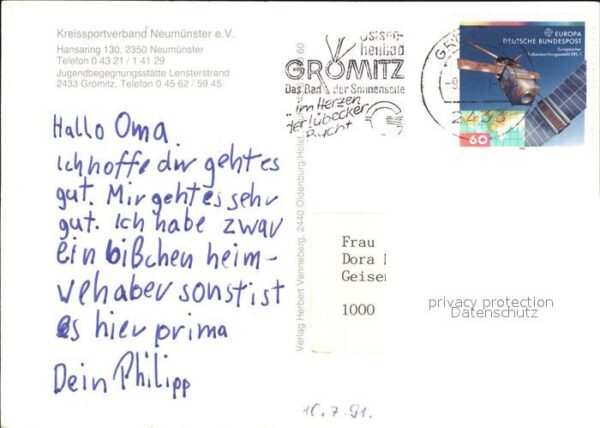 Kreissportverband Neumünster e.V.
Hansaring 130, 2350 Neumünster
Telefon 0 43 21 / 1 41 29
Jugendbegegnungsstätte Lensterstrand
2433 Grömitz, Telefon 0 45 62 / 59 45
Hallo Oma
Ich hoffe dir geht es
gut. Mir geht es sehr
gut. Ich habe zwar
ein bißchen heim-
weh aber sonst ist
es hier prima
Dein Philipp
Verlag Herbert Venneberg, 2440 Oldenburg/Holst.
60
Ostsee-
heilbad
GRÖMITZ
Das Bad der Sonnenseite
„im Herzen
der Lübecker
Bucht"
2433
EUROPA
DEUTSCHE BUNDESPOST
Europäischer
60
Frau
Dora
Geisen
1000
privacy protection
Datenschutz
10.7.91.